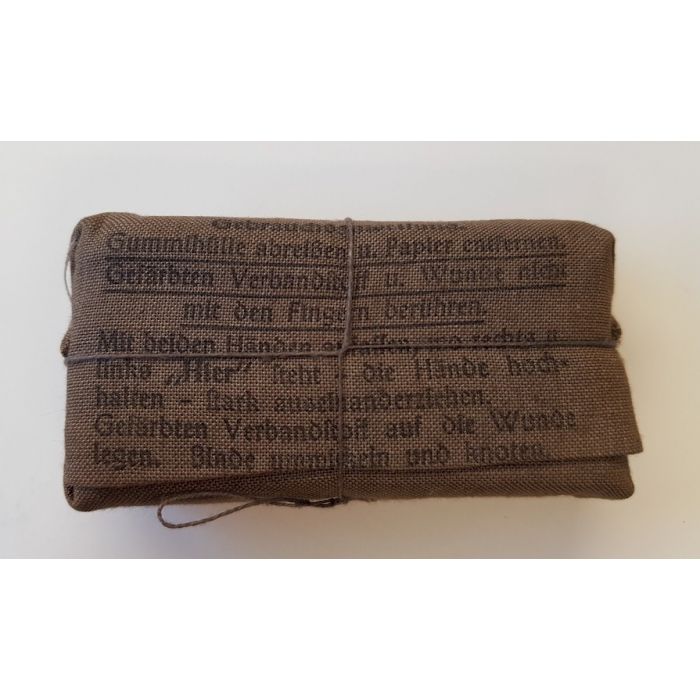 Gebrauchsanweisung.
Gummihülle abreißen u. Papier entfernen.
Gefärbten Verbandstoff u. Wunde nicht
mit den Fingern berühren.
Mit beiden Händen erfassen, wo rechts u.
links „Hier” steht die Hände hoch-
halten - stark auseinanderziehen.
Gefärbten Verbandstoff auf die Wunde
legen. Binde umwickeln und knoten.